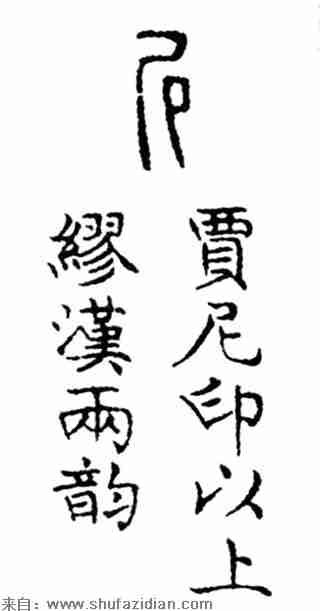 尼
賈尼印以上
繆漢兩韵
来自：www.shufazidian.com